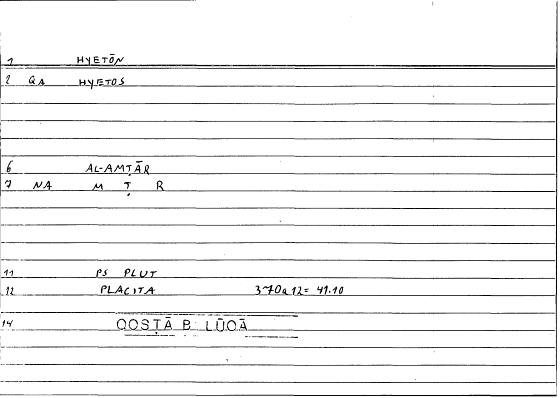 1 HYETŌN
2 QA HYETOS
6 AL-AMṬĀR
7 NA M Ṭ R
11 PS PLUT
12 PLACITA 370a12= 41.10
14 QOSṬĀ B. LŪQĀ